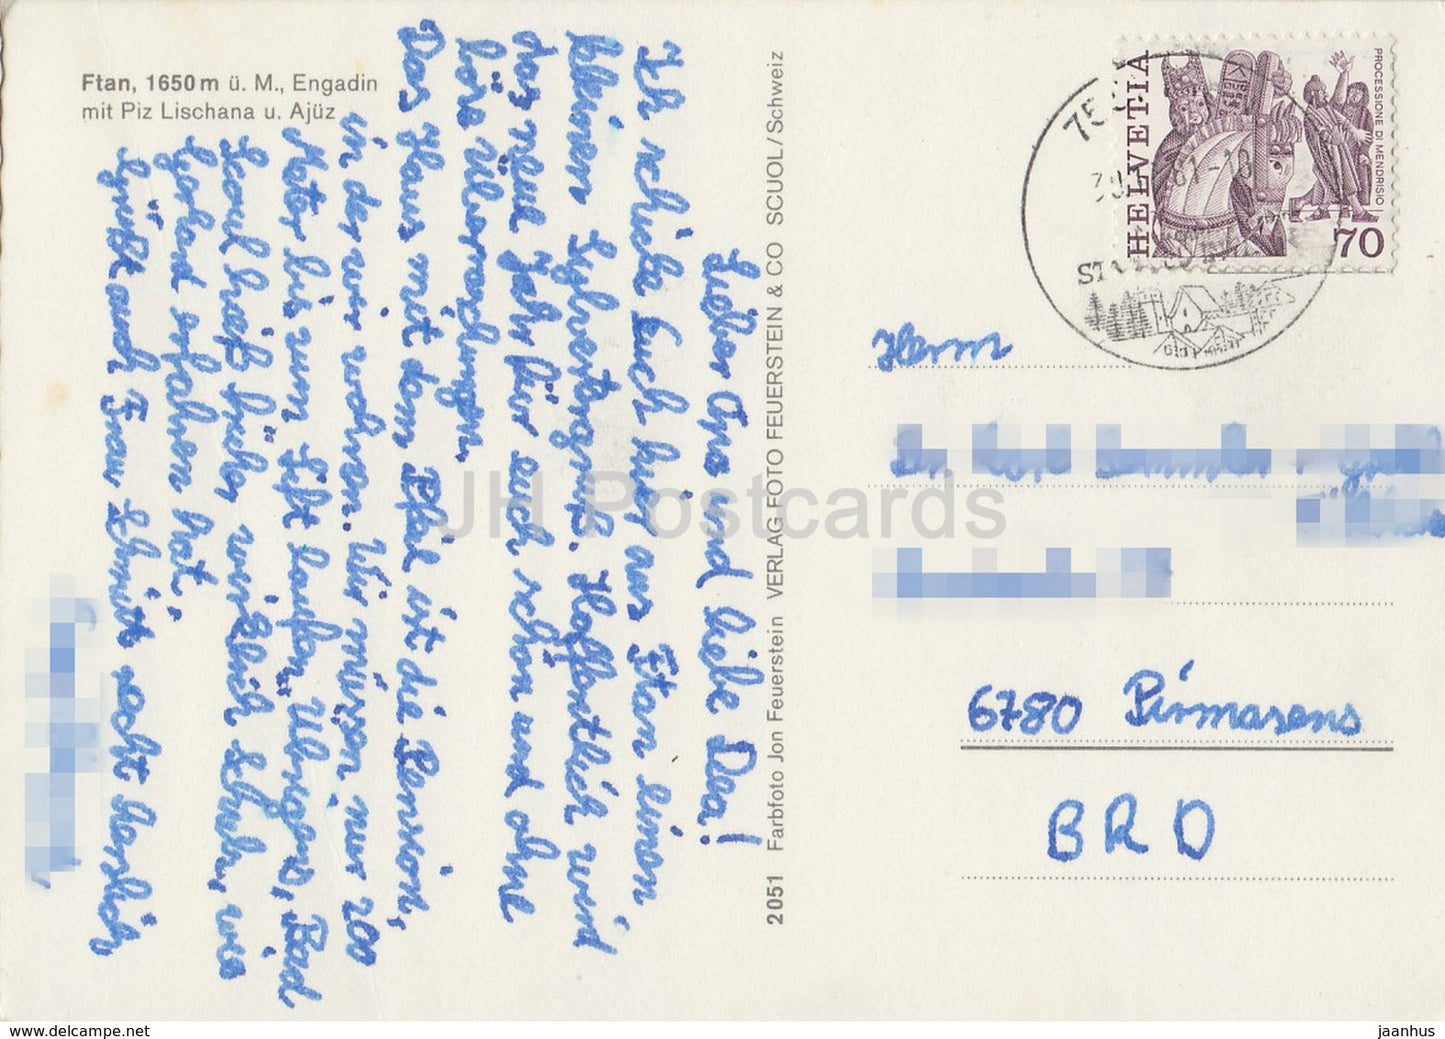 Ftan, 1650 m ü. M., Engadin
mit Piz Lischana u. Ajüz
Lieber Opa und liebe Dea!
Ich schicke Euch hier aus Ftan einen
kleinen Sylvestergruß. Hoffentlich wird
das neue Jahr für euch schön und ohne
böse Überraschungen.
Das Haus mit dem Pfeil ist die Pension,
in der wir wohnen. Wir müssen nur 200
Meter bis zum Lift laufen. Übrigens, Bad
Scoul hieß früher wirklich Schuls, wie
Gerhard erfahren hat.
Grüßt auch Frau Schmitt recht herzlich,
2051 Farbfoto Jon Feuerstein VERLAG FOTO FEUERSTEIN & CO SCUOL/Schweiz
HELVETIA
PROCESSIONE DI MENDRISIO
70
Herrn
6780 Pirmasens
BRD
JH Postcards
www.delcampe.net
jaanhus